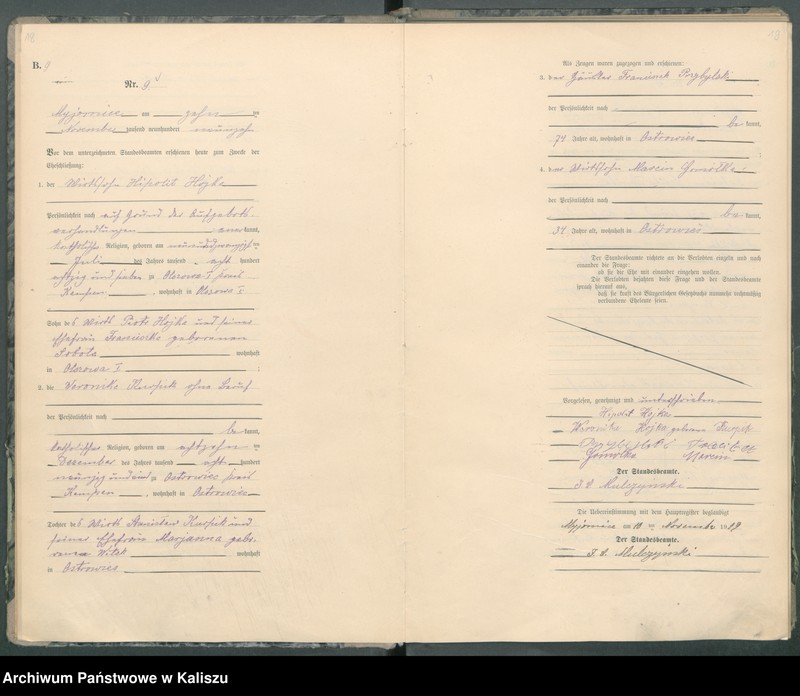 12
B. 9
Nr. 9
Myjomice am zehn ten
November tausend neunhundert neunzehn
Vor dem unterzeichneten Standesbeamten erschienen heute zum Zwecke der
Eheschließung:
1. der Wirthsohn Hipolit Hojka
Persönlichkeit nach auf Grund des Aufgebots-
verhandlungen aner kannt,
katholischer Religion, geboren am neunundzwanzigsten
Juli des Jahres tausend acht hundert
achtzig und sieben zu Olszowa I
Kempen, wohnhaft in Olszowa I
Sohn des Wirth Piotr Hojka und seiner
Ehefrau Franciszka geborenen
Sobota wohnhaft
in Olszowa I
2. die Veronika Kurpik ohne Beruf
der Persönlichkeit nach
be kannt,
katholischer Religion, geboren am achtzehn ten
Dezember des Jahres tausend acht hundert
neunzig und zu Ostrowiec
Kempen, wohnhaft in Ostrowiec
Tochter des Wirth Stanislaw Kurpik und
seiner Ehefrau Marjanna gebo-
renen Witek wohnhaft
in Ostrowiec
13
Als Zeugen waren zugezogen und erschienen:
3. der Häusler Franciszek Przybylski
der Persönlichkeit nach
be kannt,
74 Jahre alt, wohnhaft in Ostrowiec
4. der Wirthsohn Marcin Gomolka
der Persönlichkeit nach
be kannt,
34 Jahre alt, wohnhaft in Ostrowiec
Der Standesbeamte richtete an die Verlobten einzeln und nach
einander die Frage:
ob sie die Ehe mit einander eingehen wollen.
Die Verlobten bejahten diese Frage und der Standesbeamte
sprach hierauf aus,
daß sie kraft des Bürgerlichen Gesetzbuchs nunmehr rechtmäßig
verbundene Eheleute seien.
Vorgelesen, genehmigt und unterschrieben
Hipolit Hojka
Weronika Hojka geborene Kurpik
Przybylski
Gomolka Marcin
Der Standesbeamte.
I. V. Mulczynski
Die Uebereinstimmung mit dem Hauptregister beglaubigt
Myjomice am 10 ten November 1919
Der Standesbeamte.
I. V. Mulczynski
Archiwum Państwowe w Kaliszu